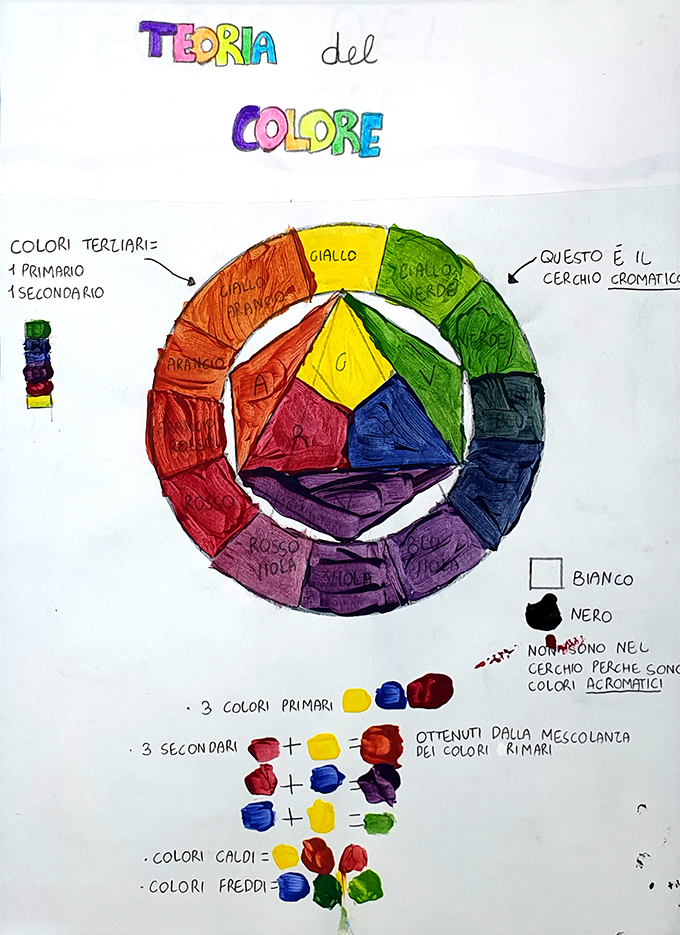 TEORIA del
COLORE
COLORI TERZIARI=
1 PRIMARIO
1 SECONDARIO
QUESTO É IL
CERCHIO CROMATICO
GIALLO
GIALLO
VERDE
VERDE
BLU
BLU
VIOLA
VIOLA
ROSSO
VIOLA
ROSSO
ARANCIO
ROSSO
ARANCIO
GIALLO
ARANCIO
G
V
B
V
R
A
BIANCO
NERO
NON SONO NEL
CERCHIO PERCHE SONO
COLORI ACROMATICI
· 3 COLORI PRIMARI
· 3 SECONDARI + = OTTENUTI DALLA MESCOLANZA
DEI COLORI RIMARI
+ =
+ =
· COLORI CALDI =
· COLORI FREDDI=